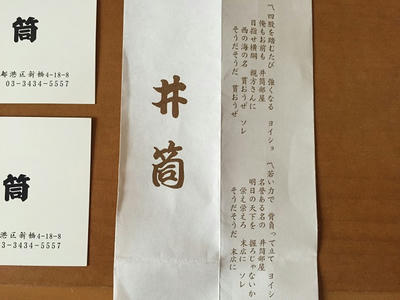 筒
都港区新橋4-18-8
03-3434-5557
筒
港区新橋4-18-8
03-3434-5557
井筒
〽四股を踏むたび 強くなる ヨイショ
俺もお前も 井筒部屋
目指せ横綱 親方さんに
西の海の名 貰おうぜ ソレ
そうだそうだ 貰おうぜ
〽若い力で 背負って立て ヨイショ
名誉ある名の 井筒部屋
明日の天下を 握ろじゃないか
栄え栄えろ 末広に ソレ
そうだそうだ 末広に